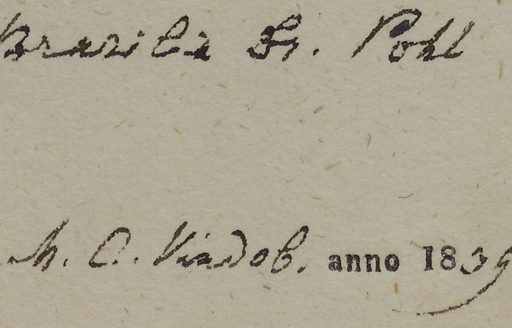 Brasilia Dr. Pohl
M. C. Vindob. anno 1839